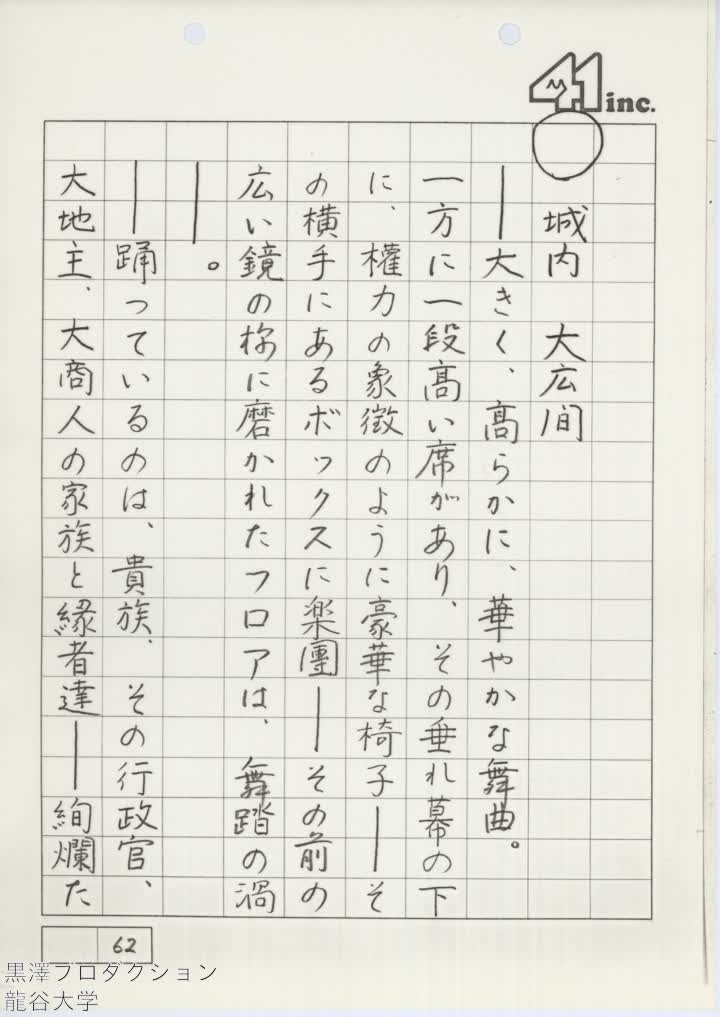 41 inc.
○
城内　大広間
――大きく、高らかに、華やかな舞曲。
一方に一段高い席があり、その垂れ幕の下
に、權力の象徴のように豪華な椅子――そ
の横手にあるボックスに楽團――その前の
広い鏡の様に磨かれたフロアは、舞踏の渦
――。
――踊っているのは、貴族、その行政官、
大地主、大商人の家族と縁者達――絢爛た
62
黒澤プロダクション
龍谷大学